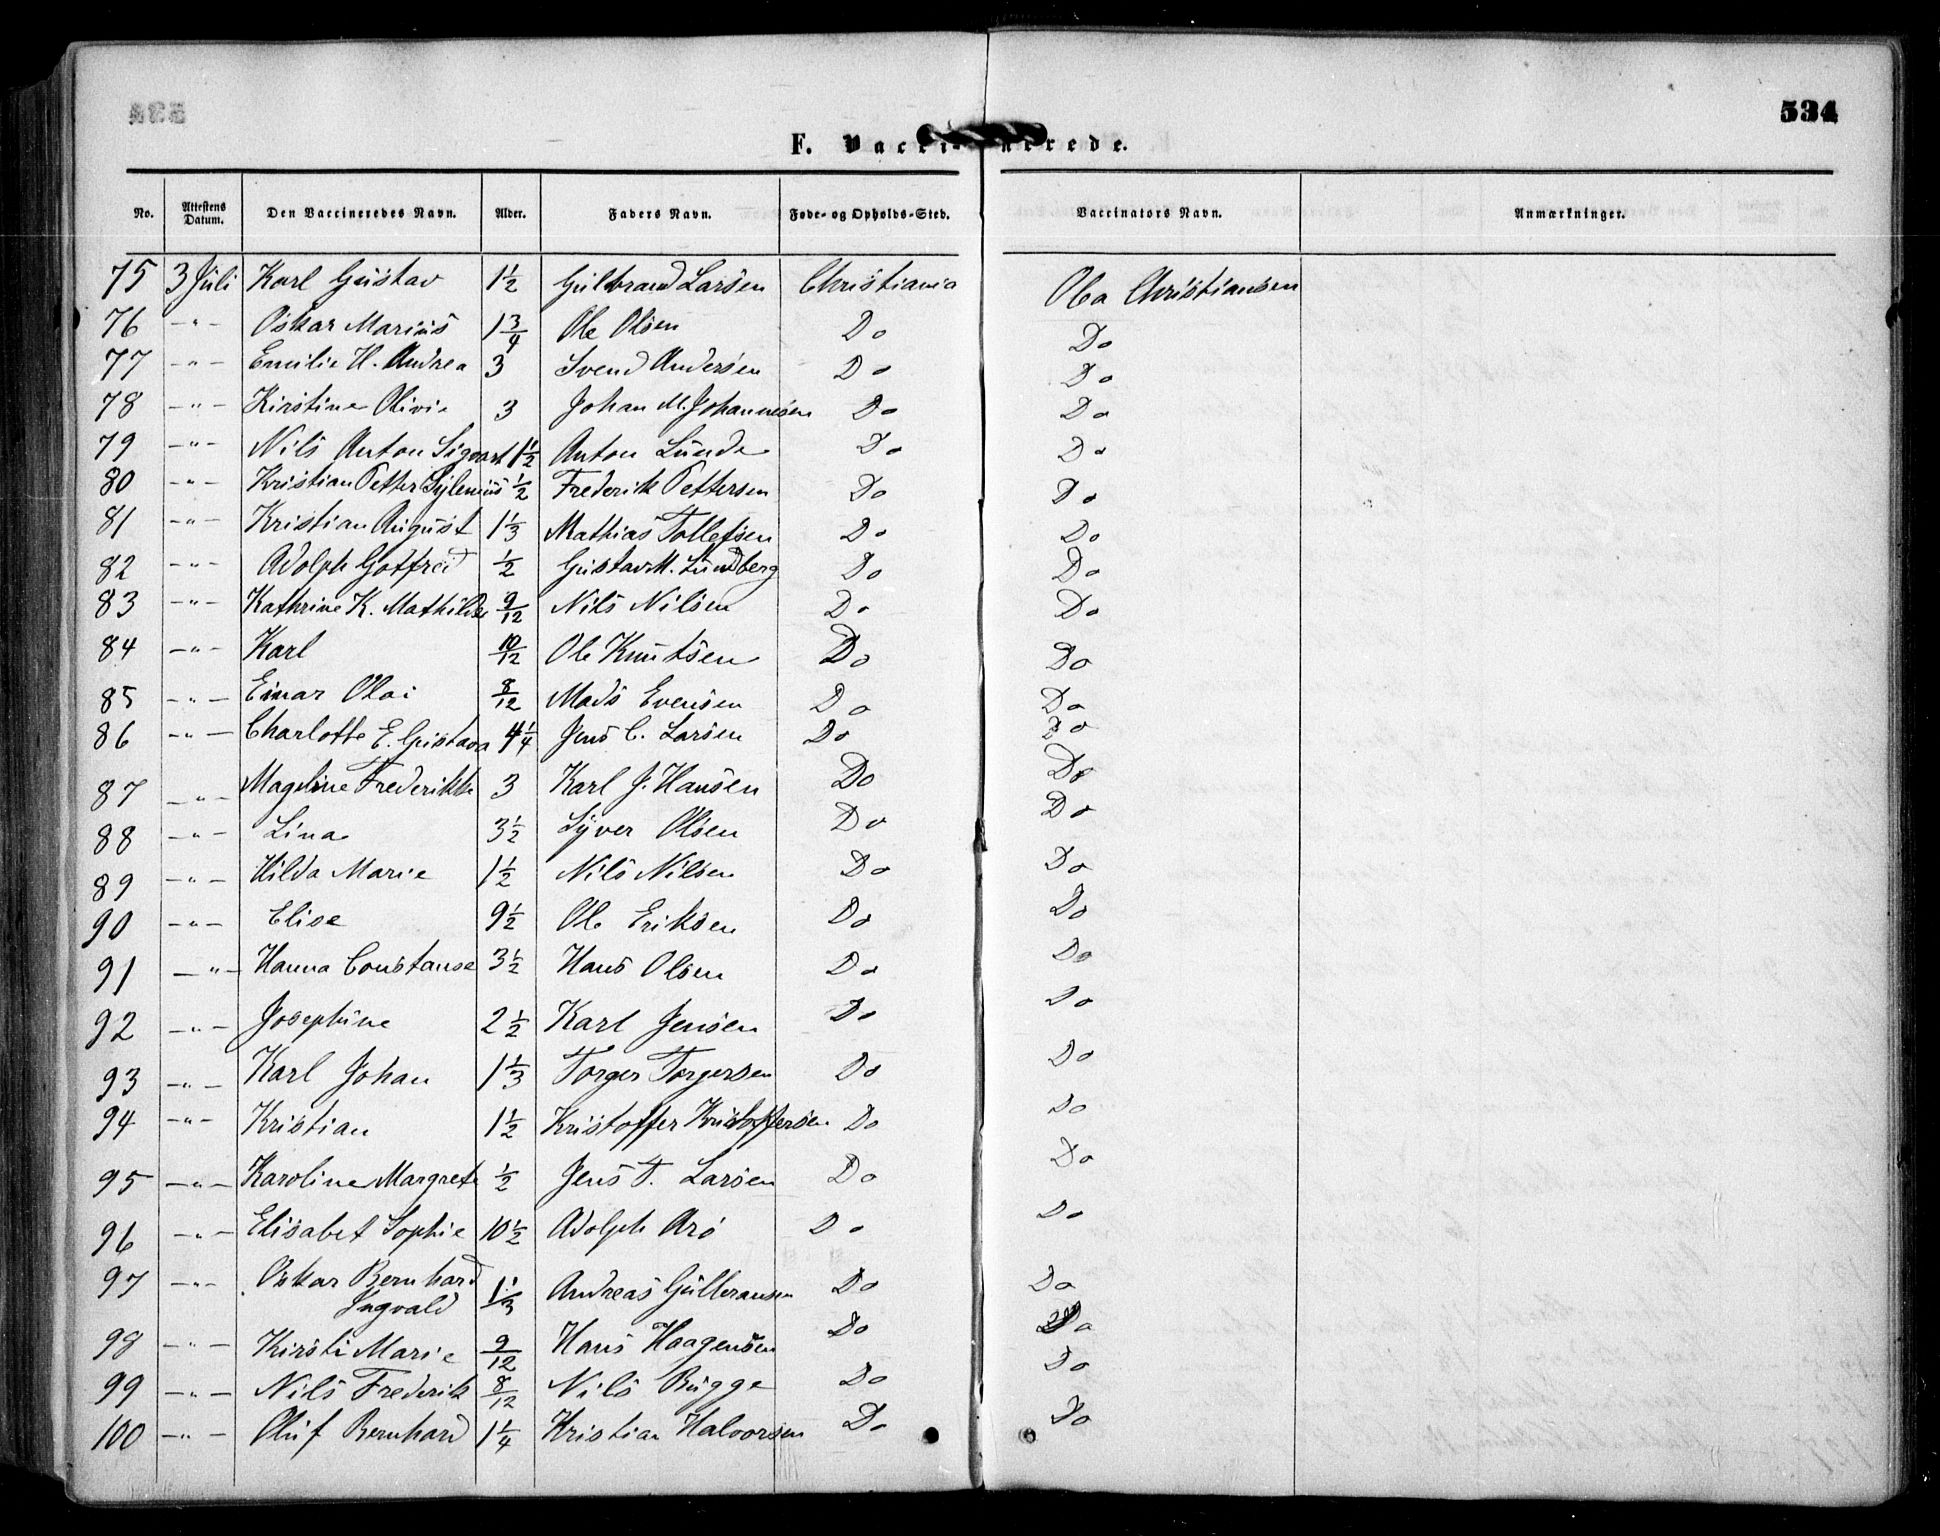 534
F. Vaccinerede.
No. Attestens Datum. Den Vaccineredes Navn. Alder. Faders Navn. Føde- og Opholds-Sted. Vaccinators Navn. Anmærkninger.
75 3 Juli Karl Gustav 1 1/2 Gulbrand Larsen Christiania Oba Christiansen
76 -"- Oskar Marius 1 3/4 Ole Olsen Do Do
77 -"- Emilie H. Andrea 3 Svend Andersen Do Do
78 -"- Kirstine Olivie 3 Johan M. Johannesen Do Do
79 -"- Nils Anton Sigvart 1 1/2 Anton Lunde Do Do
80 -"- Kristian Petter 1/2 Frederik Pettersen Do Do
81 -"- Kristian August 1 1/3 Mathias Tollefsen Do Do
82 -"- Adolph Gotfred 1/2 Gustav M. Lundberg Do Do
83 -"- Kathrine K. Mathilde 9/12 Nils Nilsen Do Do
84 -"- Karl 10/12 Ole Knutsen Do Do
85 -"- Einar Olai 8/12 Mads Evensen Do Do
86 -"- Charlotte E. Gustava 4 1/4 Jens C. Larsen Do Do
87 -"- Magdine Frederikke 3 Karl J. Hansen Do Do
88 -"- Lina 3 1/2 Syver Olsen Do Do
89 -"- Hilda Marie 1 1/2 Nils Nilsen Do Do
90 -"- Elise 9 1/2 Ole Eriksen Do Do
91 -"- Hanna Constanse 3 1/2 Hans Olsen Do Do
92 -"- Josephine 2 1/2 Karl Jensen Do Do
93 -"- Karl Johan 1 1/3 Torger Torgersen Do Do
94 -"- Kristian 1 1/2 Kristoffer Kristoffersen Do Do
95 -"- Karoline Margrete 1/2 Jens T. Larsen Do Do
96 -"- Elisabet Sophie 10 1/2 Adolph Arø Do Do
97 -"- Oskar Bernhard
Ingvald 1 1/3 Andreas Gulbransen Do Do
98 -"- Kirsti Marie 9/12 Hans Haagensen Do Do
99 -"- Nils Frederik 8/12 Nils Bugge Do Do
100 -"- Oluf Bernhard 1 1/4 Kristian Halvorsen Do Do